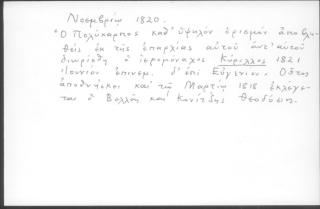 Νοεμβρίῳ 1820.
Ὁ Πολύκαρπος καθ' ὑψηλόν ὁρισμόν ἀποβλη-
θείς ἐκ τῆς ἐπαρχίας αὐτοῦ ἀντ' αὐτοῦ
διωρίσθη ὁ ἱερομόναχος Κύριλλος 1821
Ἰουνίου ἐπινεμ. δ' ἐπί Εὐγενίου. Οὗτος
ἀποθνήσκει καί τῷ Μαρτίῳ 1818 ἐκλέγε-
ται ὁ Βελλᾶς καί Κονίτζης Θεοδόσιος.